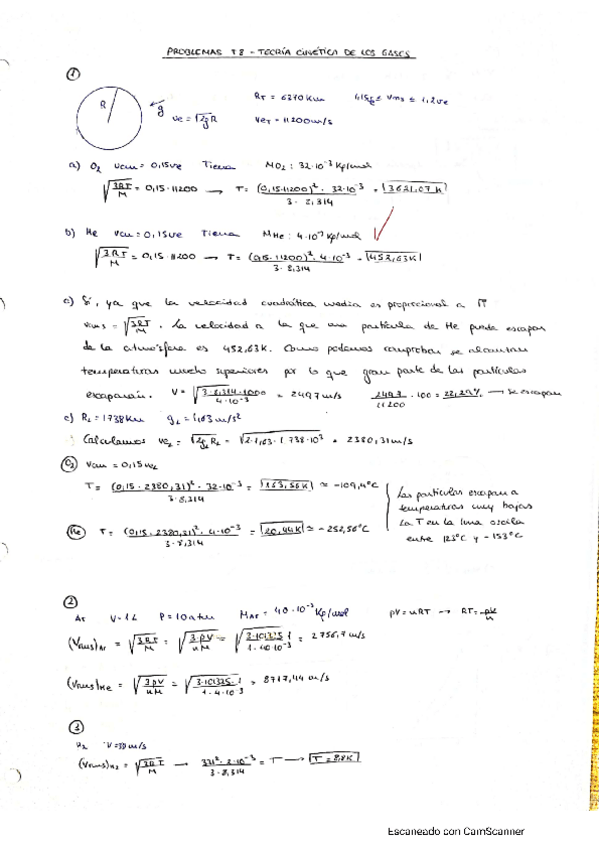 PROBLEMAS T8 - TEORÍA CINÉTICA DE LOS GASES
①
R g ve = √2gR RT = 6370 Km ≤ vms ≤ 1,2ve
veT = 11200 m/s
a) O2 vcm = 0,15ve Tierra MO2 : 32·10⁻³ Kg/mol
√(3RT/M) = 0,15·11200 → T = (0,15·11200)²·32·10⁻³ / 3·8,314 = 3621,07 K
b) He vcm = 0,15ve Tierra MHe : 4·10⁻³ Kg/mol
√(3RT/M) = 0,15·11200 → T = (0,15·11200)²·4·10⁻³ / 3·8,314 = 452,63K
c) Sí, ya que la velocidad cuadrática media es proporcional a √T
vrms = √(3RT/M). La velocidad a la que una partícula de He pueda escapar
de la atmósfera es 452,63K. Como podemos comprobar se alcanzan
temperaturas mucho superiores por lo que gran parte de las partículas
escaparán. V = √(3·8,314·1000 / 4·10⁻³) = 2497 m/s 2497/11200 · 100 = 22,29% → Se escapan
c) RL = 1738 Km gL = 1,63 m/s²
Calculamos veL = √2gLRL = √2·1,63·1738·10³ = 2380,31 m/s
O2 vcm = 0,15veL
T = (0,15·2380,31)²·32·10⁻³ / 3·8,314 = 163,56 K ≈ -109,4°C
Las partículas escapan a
temperaturas muy bajas
La T en la luna oscila
entre 123°C y -153°C
He T = (0,15·2380,31)²·4·10⁻³ / 3·8,314 = 20,44K ≈ -252,56°C
②
Ar V=1L P=10atm MAr = 40·10⁻³ Kg/mol pV = nRT → RT = pV/n
(Vrms)Ar = √(3RT/M) = √(3·pV/nM) = √(3·101325·1 / 1·40·10⁻³) = 2756,7 m/s
(Vrms)He = √(3pV/nM) = √(3·101325·1 / 1·4·10⁻³) = 8717,44 m/s
③
H2 m/s
(Vrms)H2 = √(3RT/M) → ·2·10⁻³ / 3·8,314 = T →
Escaneado con CamScanner